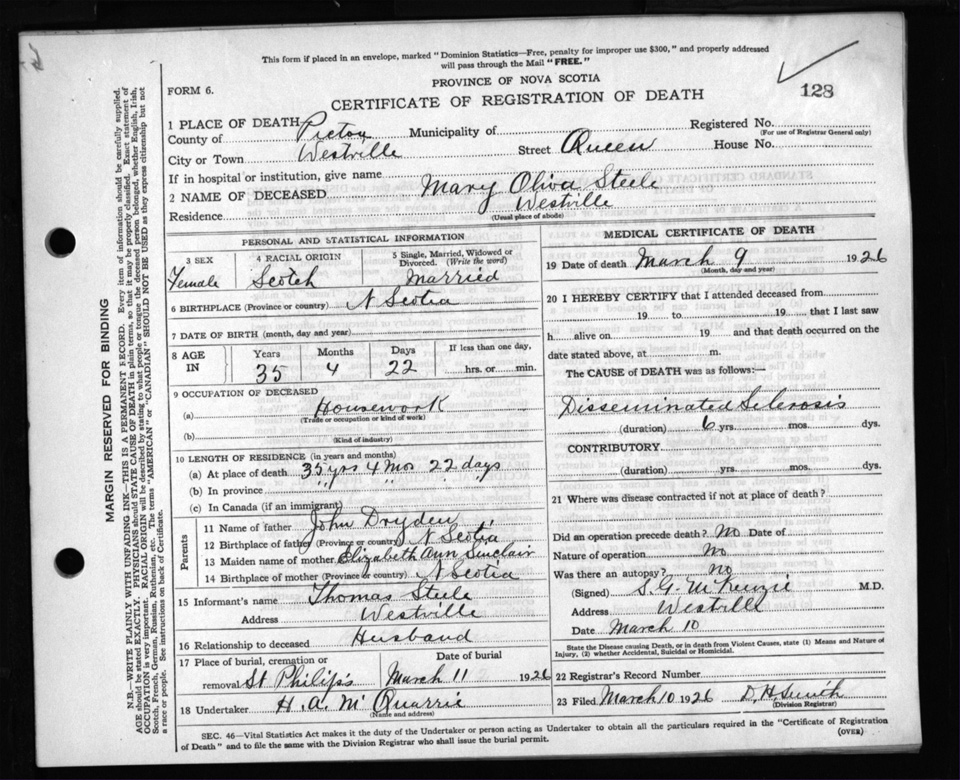 This form if placed in an envelope, marked "Dominion Statistics—Free, penalty for improper use $300," and properly addressed
will pass through the Mail "FREE."
PROVINCE OF NOVA SCOTIA
FORM 6.
CERTIFICATE OF REGISTRATION OF DEATH
128
1 PLACE OF DEATH
County of Pictou Municipality of Registered No.
(For use of Registrar General only)
City or Town Westville Street Queen House No.
If in hospital or institution, give name
2 NAME OF DECEASED Mary Oliva Steele
Residence Westville
(Usual place of abode)
PERSONAL AND STATISTICAL INFORMATION
3 SEX 4 RACIAL ORIGIN 5 Single, Married, Widowed or Divorced. (Write the word)
Female Scotch Married
6 BIRTHPLACE (Province or country) N Scotia
7 DATE OF BIRTH (month, day and year)
8 AGE IN Years Months Days If less than one day,
35 4 22 hrs. or min.
9 OCCUPATION OF DECEASED
(a) Housework
(Trade or occupation or kind of work)
(b)
(Kind of industry)
10 LENGTH OF RESIDENCE (in years and months)
(a) At place of death 35 yrs 4 Mos 22 days
(b) In province " " "
(c) In Canada (if an immigrant)
Parents
11 Name of father John Dryden
12 Birthplace of father (Province or country) N Scotia
13 Maiden name of mother Elizabeth Ann Sinclair
14 Birthplace of mother (Province or country) N Scotia
15 Informant's name Thomas Steele
Address Westville
16 Relationship to deceased Husband
17 Place of burial, cremation or Date of burial
removal St Philip's March 11 1926
18 Undertaker H. A. McQuarrie
(Name and address)
MEDICAL CERTIFICATE OF DEATH
19 Date of death March 9 1926
(Month, day and year)
20 I HEREBY CERTIFY that I attended deceased from
19 to 19 that I last saw
h alive on 19 and that death occurred on the
date stated above, at m.
The CAUSE of DEATH was as follows:—
Disseminated Sclerosis
(duration) 6 yrs. mos. dys.
CONTRIBUTORY
(duration) yrs. mos. dys.
21 Where was disease contracted if not at place of death?
Did an operation precede death? No Date of
Nature of operation No
Was there an autopsy? no
(Signed) S. G. McKenzie M.D.
Address Westville
Date March 10
State the Disease causing Death, or in death from Violent Causes, state (1) Means and Nature of
Injury, (2) whether Accidental, Suicidal or Homicidal.
22 Registrar's Record Number
23 Filed March 10 1926 D. H Smith
(Division Registrar)
SEC. 46—Vital Statistics Act makes it the duty of the Undertaker or person acting as Undertaker to obtain all the particulars required in the "Certificate of Registration
of Death" and to file the same with the Division Registrar who shall issue the burial permit. (OVER)
MARGIN RESERVED FOR BINDING
N.B.—WRITE PLAINLY WITH UNFADING INK—THIS IS A PERMANENT RECORD. Every item of information should be carefully supplied.
AGE should be stated EXACTLY. PHYSICIANS should STATE CAUSE OF DEATH in plain terms, so that it may be properly classified. Exact statement of
OCCUPATION is very important. RACIAL ORIGIN will be described by stating to what people or tongue the deceased person belonged, whether English, Irish,
Scotch, French, German, Russian, Ruthenian, etc. The terms "AMERICAN" or "CANADIAN" SHOULD NOT BE USED as they express citizenship but not
a race or people. See instructions on back of Certificate.